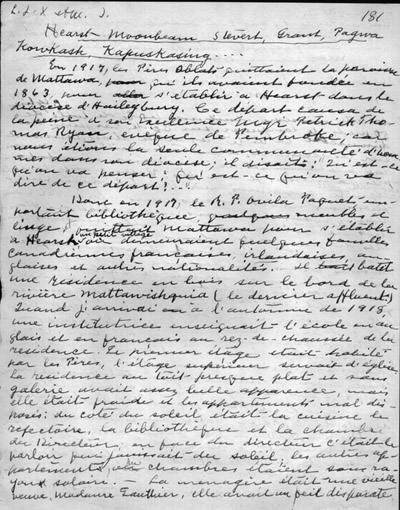 L.J.X et M. I.
181
Hearst Moonbeam Stevert, Grant, Pagwa
Kowkash, Kapuskasing...
En 1917, les Pères Oblats quittaient la paroisse
de Mattawa, qu'ils avaient fondée en
1863, pour s'établir à Hearst dans le
diocèse d'Haileybury. Ce départ causa de
la peine à son Excellence Mgr Patrick Tho-
mas Ryan, évêque de Pembroke; car
nous étions la seule communauté d'hom
mes dans son diocèse; il disait: Qu'est-ce
qu'on va penser; qu'est-ce qu'on va
dire de ce départ!...
Donc en 1917, le R.P. Ovila Paquet em-
portait bibliothèque, meubles et
linge, Mattawa pour s'établir
à Hearst un petit village où demeuraient quelques familles
canadiennes françaises, irlandaises, an-
glaises et autres nationalités. Il batit
une résidence en bois sur le bord de la
rivière Mattawishquia (le dernier affluent)
Quand j'arrivai à l'automne de 1918,
une institutrice enseignait l'école en an
glais et en français au rez-de-chaussée de la
résidence. Le premier étage était habité
par les Pères, l'étage supérieur servait d'église.
La résidence au toit presque plat et sans
galerie avait assez belle apparence, mais
elle était froide et les appartements mal dis
posés: du côté du soleil était la cuisine le
refectoire, la bibliothèque et la chambre
du Directeur, en face du directeur c'était le
parloir qui jouissait du soleil; les autres ap-
partements, ou chambres étaient sous ra-
yons solaire. — La ménagère était une vieille
veuve, Madame Gauthier, elle avait un œil disparate